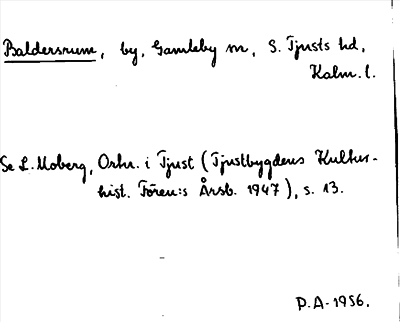 Baldersrum, by, Gamleby sn, S. Tjusts hd,
Kalm. l.
Se L. Moberg, Ortn. i Tjust (Tjustbygdens Kultur-
hist. Fören:s Årsb. 1947), s. 13.
P.A. 1956.